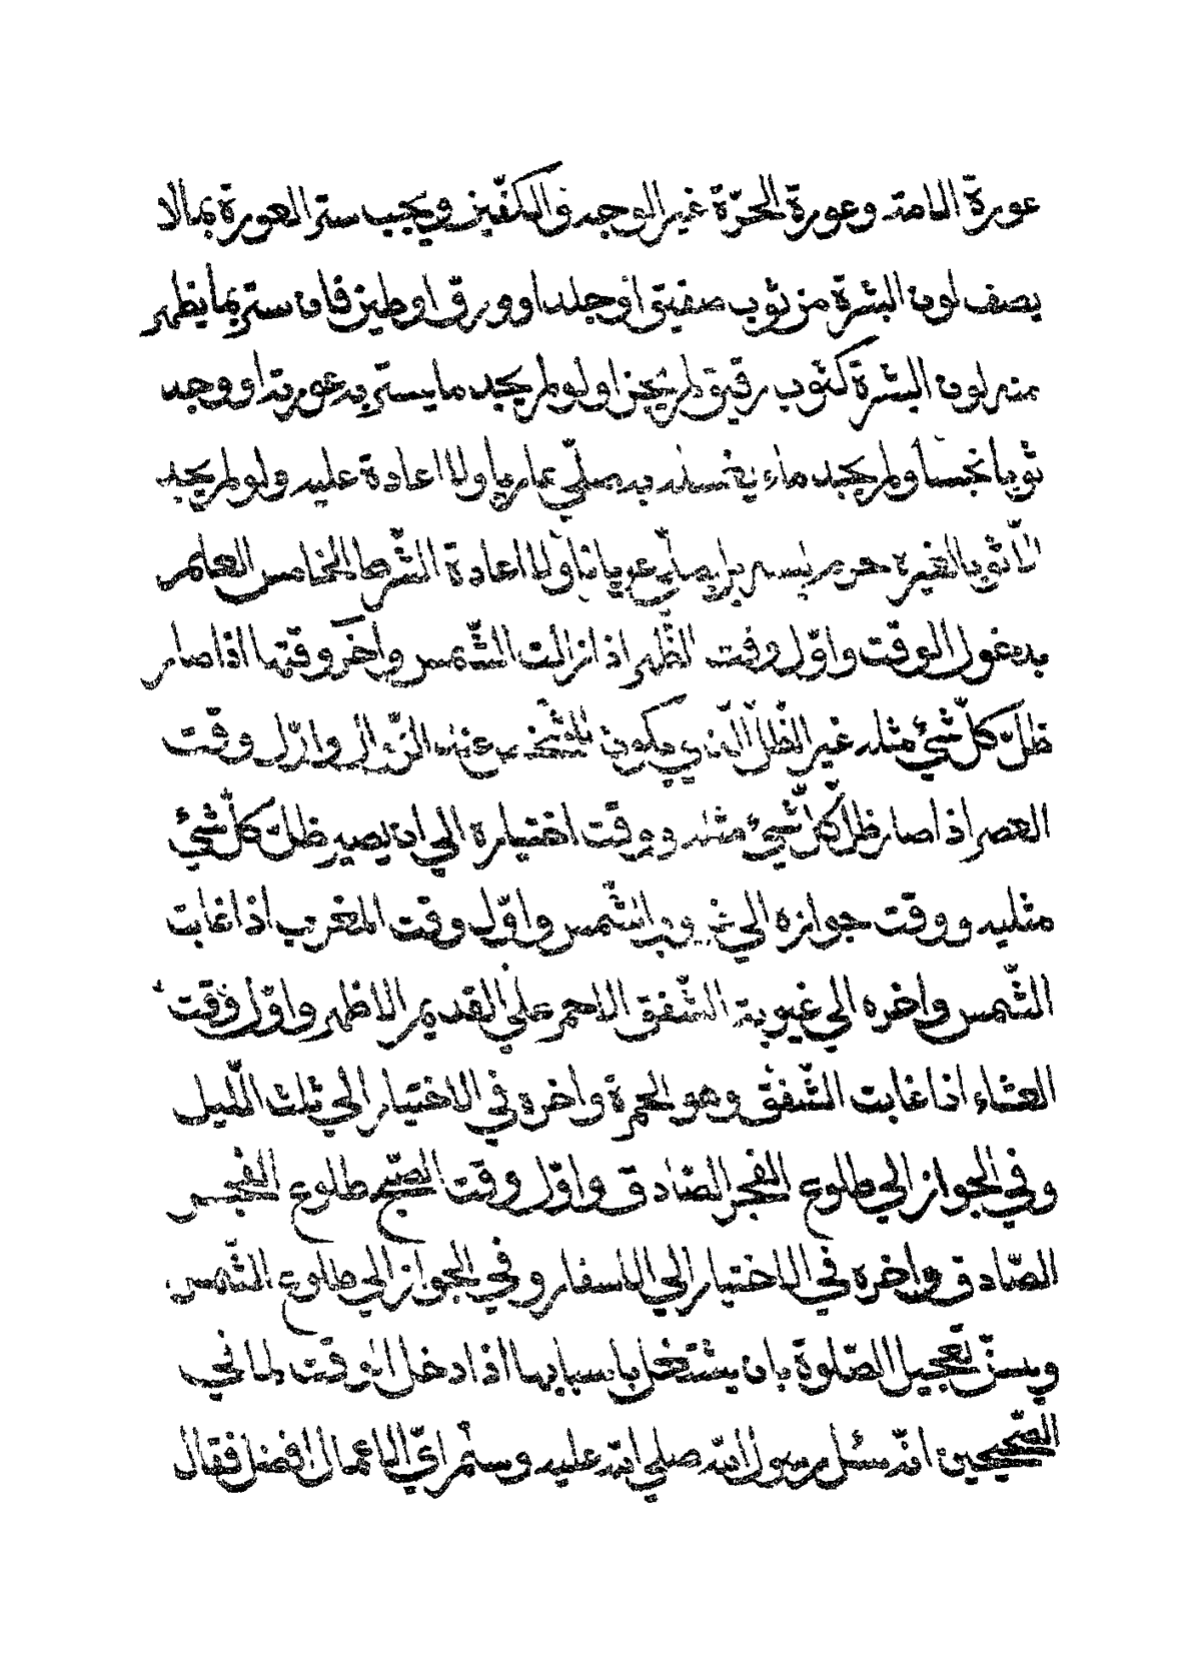 عورة الامة وعورة الحرّة غير الوجه والكفّين ويجب ستر العورة بمالا
يصف لون البشرة من ثوب صفيق او جلد او ورق او طين فان ستر بما يظهر
منه لون البشرة كثوب رقيق لم يجز ولو لم يجد ما يستر به عورته او وجد
ثوبا نجسا ولم يجد ماء يغسله به صلّي عاريا ولا اعادة عليه ولو لم يجد
الّا ثوبا لغيره حرم لبسه بل يصلّي عريانا ولا اعادة الشّرط الخامس العلم
بدخول الوقت واوّل وقت الظّهر اذا زالت الشّمس واخر وقتها اذا صار
ظلّ كلّ شيئ مثله غير الظّلّ الّذي يكون للشّخص عند الزّوال واوّل وقت
العصر اذا صار ظلّ كلّ شيئ مثله ووقت اختياره الي ان يصير ظلّ كلّ شيئ
مثليه ووقت جوازه الي غروب الشّمس واوّل وقت المغرب اذا غابت
الشّمس واخره الي غيوبة الشّفق الاحمر علي القديم الاظهر واوّل وقت
العشاء اذا غابت الشّفق وهو الحمرة واخره في الاختيار الي ثلث اللّيل
وفي الجواز الي طلوع الفجر الصّادق واوّل وقت الصّبح طلوع الفجر
الصّادق واخره في الاختيار الي الاسفار وفي الجواز الي طلوع الشّمس
ويسنّ تعجيل الصّلوة بان يشتغل باسبابها اذا دخل الوقت لما في
الصّحيحين انّه سئل رسول الله صلي الله عليه وسلّم ايّ الاعمال افضل فقال